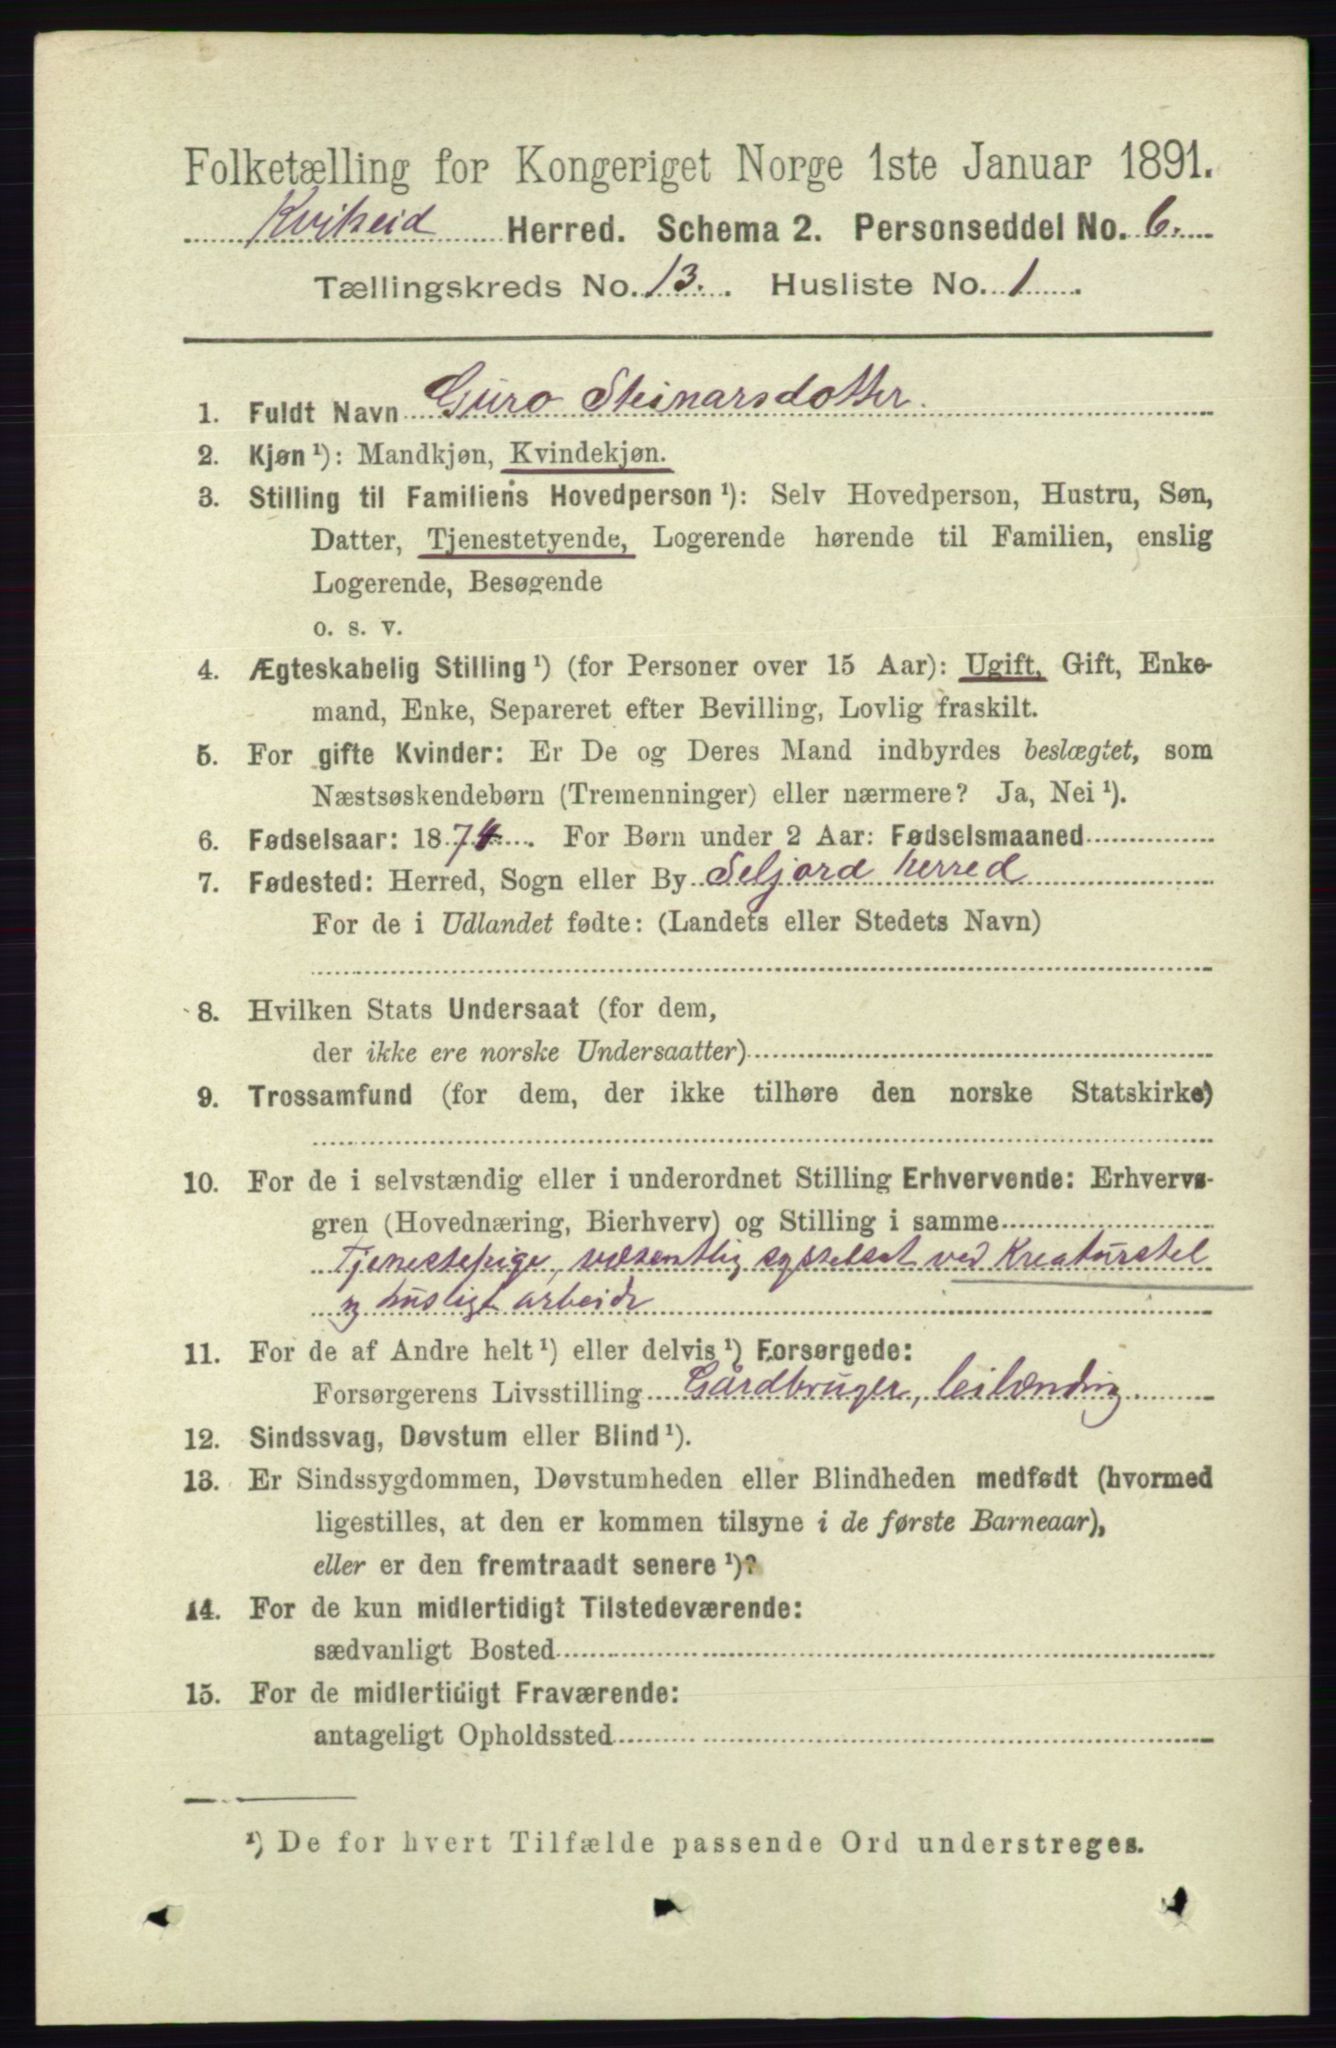 Folketælling for Kongeriget Norge 1ste Januar 1891.
Kviteseid Herred. Schema 2. Personseddel No. 6.
Tællingskreds No. 13. Husliste No. 1
1. Fuldt Navn Guro Steinarsdotter.
2. Kjøn ¹): Mandkjøn, Kvindekjøn.
3. Stilling til Familiens Hovedperson ¹): Selv Hovedperson, Hustru, Søn,
Datter, Tjenestetyende, Logerende hørende til Familien, enslig
Logerende, Besøgende
o. s. v.
4. Ægteskabelig Stilling ¹) (for Personer over 15 Aar): Ugift, Gift, Enke-
mand, Enke, Separeret efter Bevilling, Lovlig fraskilt.
5. For gifte Kvinder: Er De og Deres Mand indbyrdes beslægtet, som
Næstsøskendebørn (Tremenninger) eller nærmere? Ja, Nei ¹).
6. Fødselsaar: 1874. For Børn under 2 Aar: Fødselsmaaned
7. Fødested: Herred, Sogn eller By Seljord herred
For de i Udlandet fødte: (Landets eller Stedets Navn)
8. Hvilken Stats Undersaat (for dem,
der ikke ere norske Undersaatter)
9. Trossamfund (for dem, der ikke tilhøre den norske Statskirke)
10. For de i selvstændig eller i underordnet Stilling Erhvervende: Erhvervs-
gren (Hovednæring, Bierhverv) og Stilling i samme
Tjenestepige, væsentlig sysselsat ved Kreaturstel
og husligt arbeide
11. For de af Andre helt ¹) eller delvis ¹) Forsørgede:
Forsørgerens Livsstilling Gårdbruger, leilænding
12. Sindssvag, Døvstum eller Blind ¹).
13. Er Sindssygdommen, Døvstumheden eller Blindheden medfødt (hvormed
ligestilles, at den er kommen tilsyne i de første Barneaar),
eller er den fremtraadt senere ¹)?
14. For de kun midlertidigt Tilstedeværende:
sædvanligt Bosted
15. For de midlertidigt Fraværende:
antageligt Opholdssted
¹) De for hvert Tilfælde passende Ord understreges.